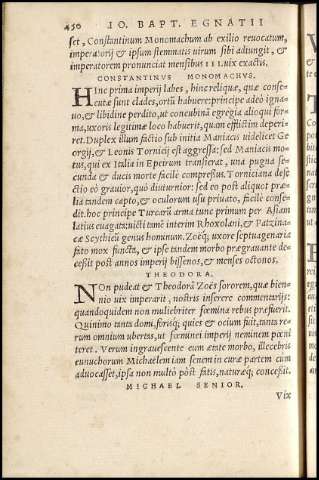 450 IO. BAPT. EGNATII
set, Constantinum Monomachum ab exilio reuocatum,
imperatorij & ipsum stemmatis uirum sibi adiungit, &
imperatorem pronunciat mensibus III. uix exactis.
CONSTANTINUS MONOMACHVS.
Hinc prima imperij labes, hinc reliquæ, quæ conse-
cutæ sunt clades, ortū habuere: principe adeò igna-
uo, & libidine perdito, ut concubina egregia alioqui for-
ma, uxoris legitimæ loco habuerit, quam efflictim deperi-
ret. Duplex illum factio sub initia Maniacis uidelicet Ge
orgij, & Leonis Tornicij est aggressa: sed Maniacis mo-
tus, qui ex Italia in Epeirum transierat, una pugna se-
cunda & ducis morte facilè compressus. Torniciana defe
ctio eò grauior, quò diuturnior: sed eo post aliquot præ-
lia tandem capto, & oculorum usu priuato, facilè conse-
dit. hoc principe Turcarū arma tunc primum per Asiam
latius euagata: uicti tamē interim Rhoxolani, & Patzina-
cæ Scythici genus hominum. Zoēq; uxore septuagenaria
fato mox functa, & ipse tandem morbo prægrauante de-
cessit post annos imperij bissenos, & menses octonos.
THEODORA.
Non pudeat & Theodorā Zoës sororem, quæ bien-
nio uix imperarit, nostris inserere commentarijs:
quandoquidem non muliebriter fœmina rebus præfuerit.
Quinimo tanta domi, forisq; quies & ocium fuit, tanta re-
rum omnium ubertas, ut fœminei imperij neminem pœni
teret. Verum ingrauescente cum ætate morbo, illecebris
eunuchorum Michaëlem iam senem in curæ partem cum
aduocasset, ipsa non multò pòst fatis, naturæq; concessit.
MICHAEL SENIOR.
Vix